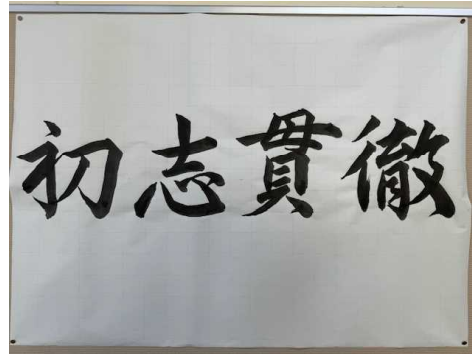 初志貫徹